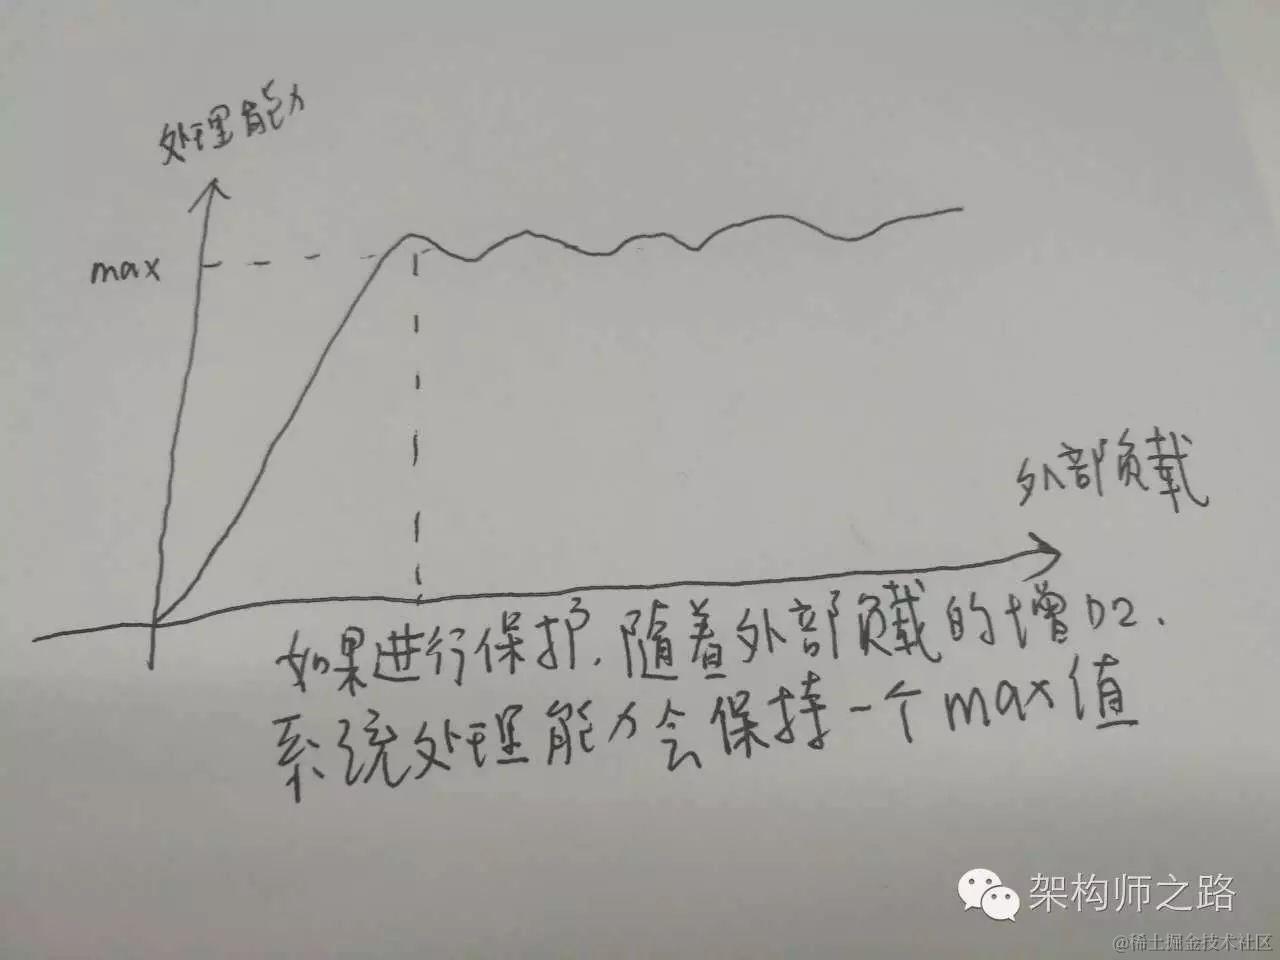 处理能力
max
外部负载
如果进行保护,随着外部负载的增加,
系统处理能力会保持一个max值
架构师之路
@稀土掘金技术社区